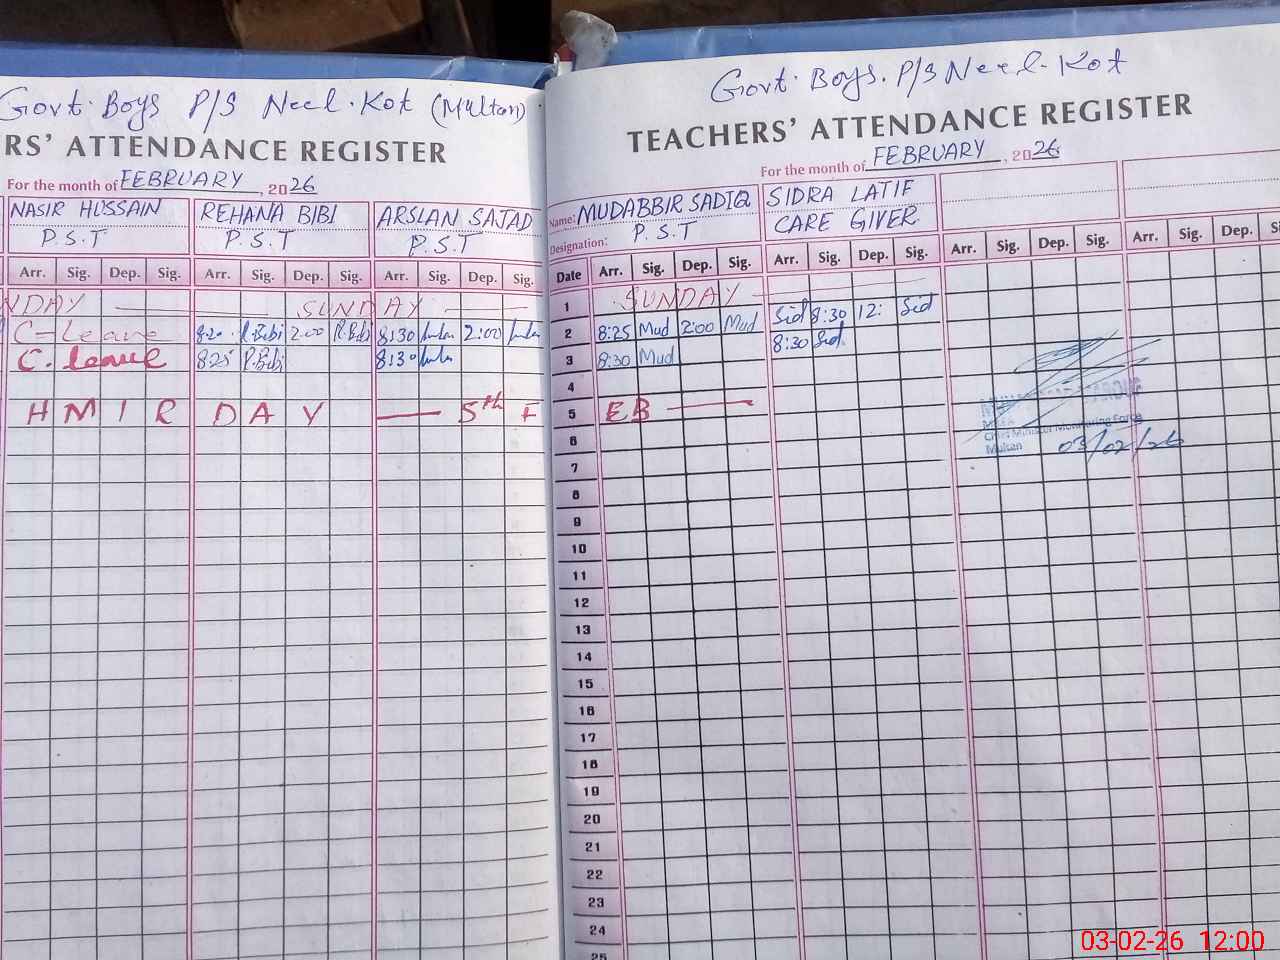 Govt. Boys P/S Neel.Kot (Multan)
RS' ATTENDANCE REGISTER
For the month of FEBRUARY, 2026
NASIR HUSSAIN REHANA BIBI ARSLAN SAJAD
P.S.T P.S.T P.S.T
Arr. Sig. Dep. Sig. Arr. Sig. Dep. Sig. Arr. Sig. Dep. Sig.
NDAY SUNDAY
C-Leave 8:20 R.Bibi 2:00 R.Bibi 8:30 2:00
C.leave 8:25 R.Bibi 8:30
HMIR DAY — 5th F
Govt. Boys. P/S Neel.Kot
TEACHERS' ATTENDANCE REGISTER
For the month of FEBRUARY, 2026
Name: MUDABBIR SADIQ SIDRA LATIF
Designation: P.S.T CARE GIVER
Date Arr. Sig. Dep. Sig. Arr. Sig. Dep. Sig. Arr. Sig. Dep. Sig. Arr. Sig. Dep. S
1 SUNDAY
2 8:25 Mud 2:00 Mud Sid 8:30 12: Sid
3 8:30 Mud 8:30 Sid
4
5 EB —
6
7
8
9
10
11
12
13
14
15
16
17
18
19
20
21
22
23
24
25
Chief Minister Monitoring Force
Multan 03/02/26
03-02-26 12:00